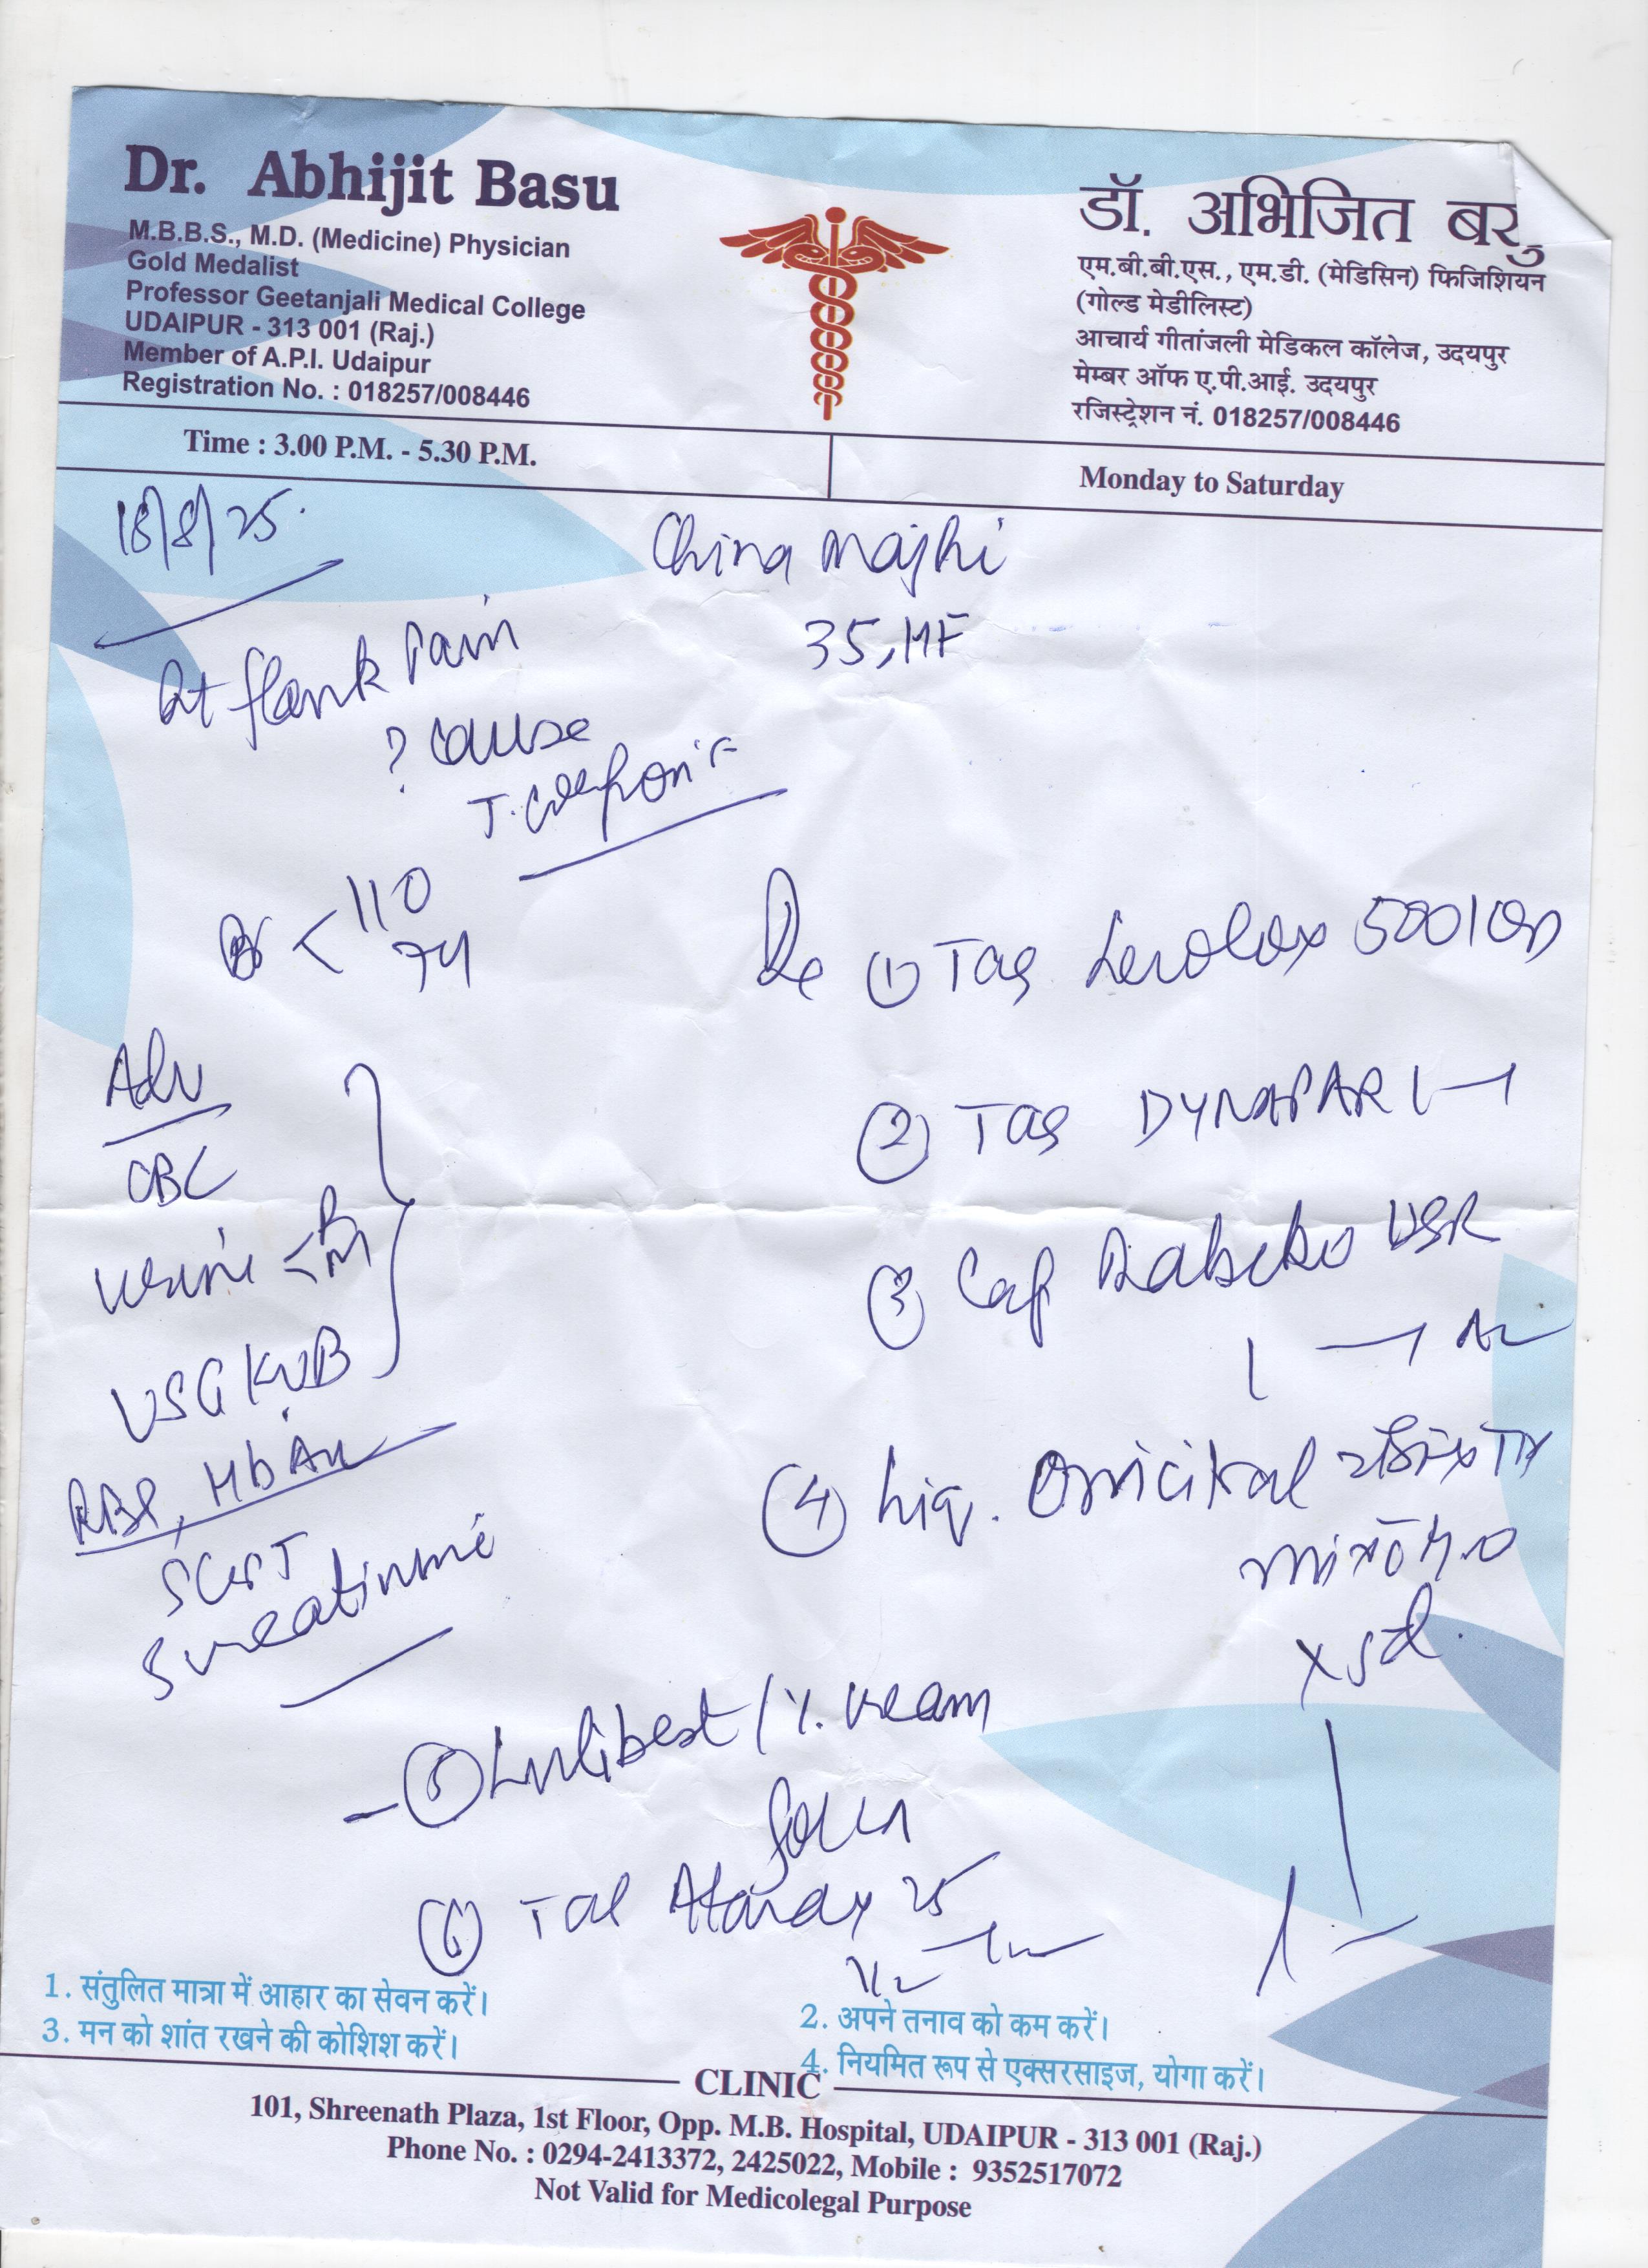 Dr. Abhijit Basu
M.B.B.S., M.D. (Medicine) Physician
Gold Medalist
Professor Geetanjali Medical College
UDAIPUR - 313 001 (Raj.)
Member of A.P.I. Udaipur
Registration No. : 018257/008446
डॉ. अभिजित बसु
एम.बी.बी.एस., एम.डी. (मेडिसिन) फिजिशियन
(गोल्ड मेडीलिस्ट)
आचार्य गीतांजली मेडिकल कॉलेज, उदयपुर
मेम्बर ऑफ ए.पी.आई. उदयपुर
रजिस्ट्रेशन नं. 018257/008446
Time : 3.00 P.M. - 5.30 P.M.
Monday to Saturday
18/8/25.
China Majhi
35, HF
flank Pain
? cause
110
74
Rx ① Tab 500 1 OD
② Tab DYNAPAR 1—1
③ Cap DSR
④ Liq.
mix
x 5d.
Adv
CBC
urine < R M
USG KUB
SGPT
S creatinine
⑤ Lulibest 1% cream
⑥ Tab Atarax 25
1/2
1. संतुलित मात्रा में आहार का सेवन करें।
2. अपने तनाव को कम करें।
3. मन को शांत रखने की कोशिश करें।
4. नियमित रूप से एक्सरसाइज, योगा करें।
CLINIC
101, Shreenath Plaza, 1st Floor, Opp. M.B. Hospital, UDAIPUR - 313 001 (Raj.)
Phone No. : 0294-2413372, 2425022, Mobile : 9352517072
Not Valid for Medicolegal Purpose